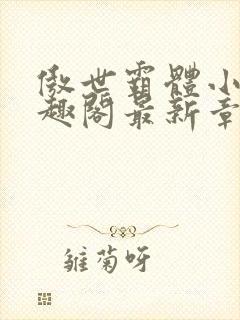 傲世霸體小
趣閣最新章
雏菊呀